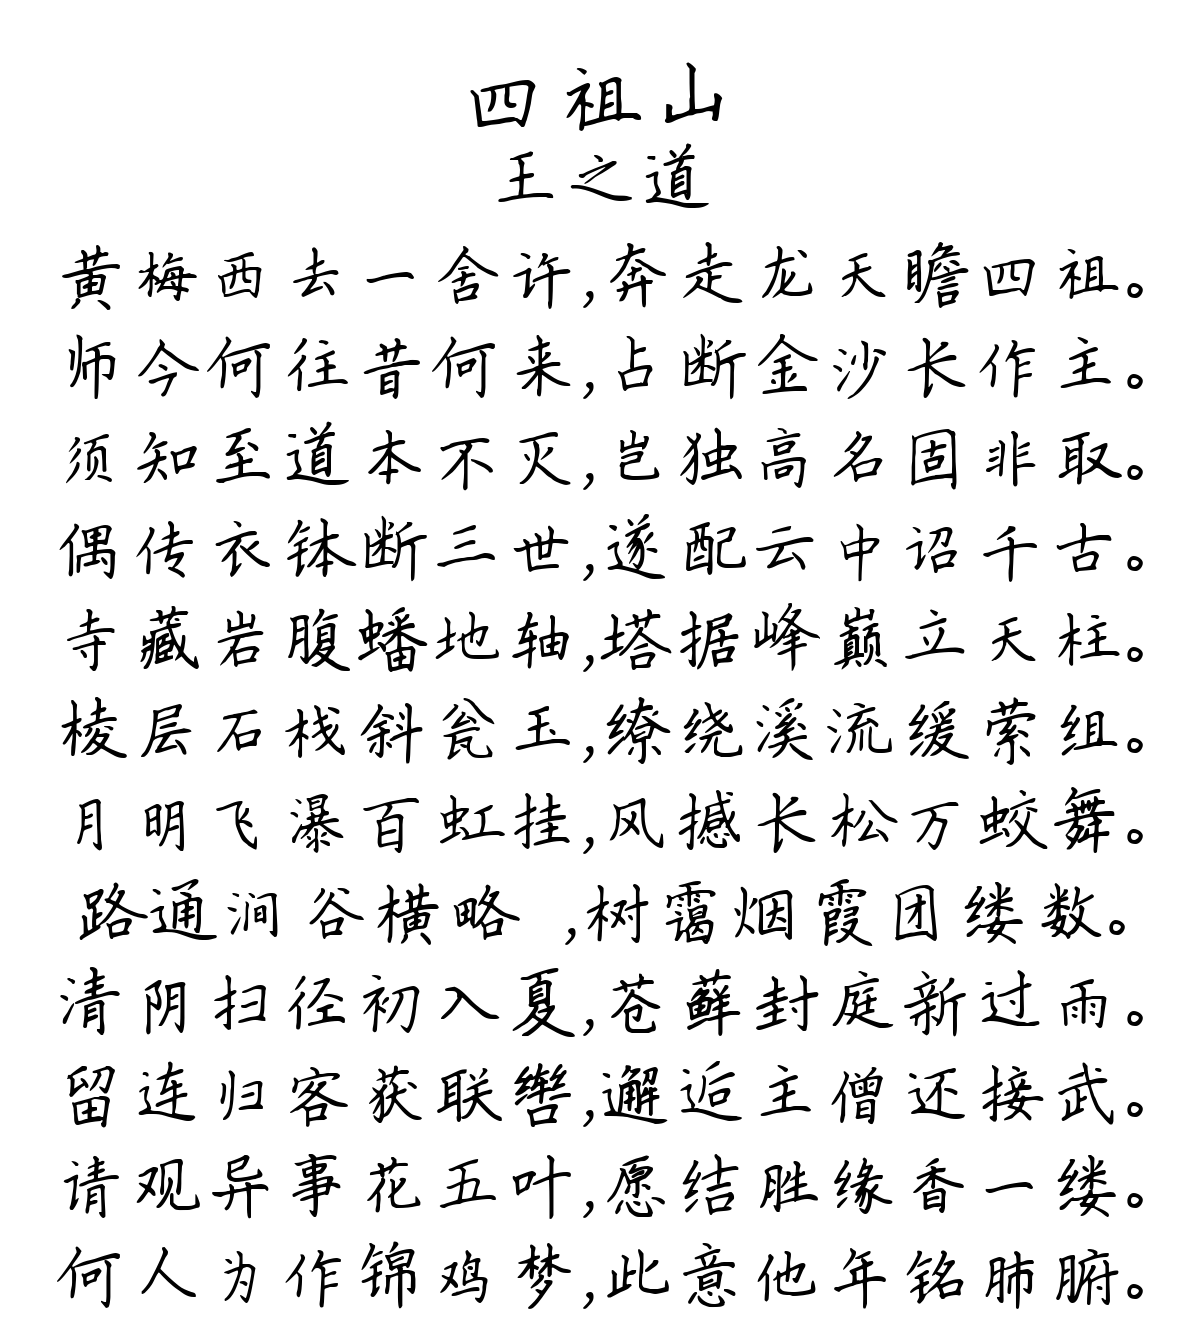 四祖山
王之道
黄梅西去一舍许,奔走龙天瞻四祖。
师今何往昔何来,占断金沙长作主。
须知至道本不灭,岂独高名固非取。
偶传衣钵断三世,遂配云中诏千古。
寺藏岩腹蟠地轴,塔据峰巅立天柱。
棱层石栈斜瓮玉,缭绕溪流缓萦组。
月明飞瀑百虹挂,风撼长松万蛟舞。
路通涧谷横略 ,树霭烟霞团缕数。
清阴扫径初入夏,苍藓封庭新过雨。
留连归客获联辔,邂逅主僧还接武。
请观异事花五叶,愿结胜缘香一缕。
何人为作锦鸡梦,此意他年铭肺腑。